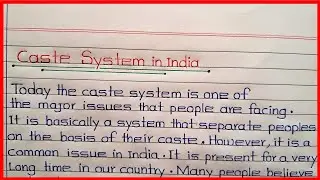 Caste System in India
Today the caste system is one of
the major issues that people are facing.
It is basically a system that separate peoples
on the basis of their caste. However, it is a
Common issue in India. It is present for a very
Long time in our country. Many people believe